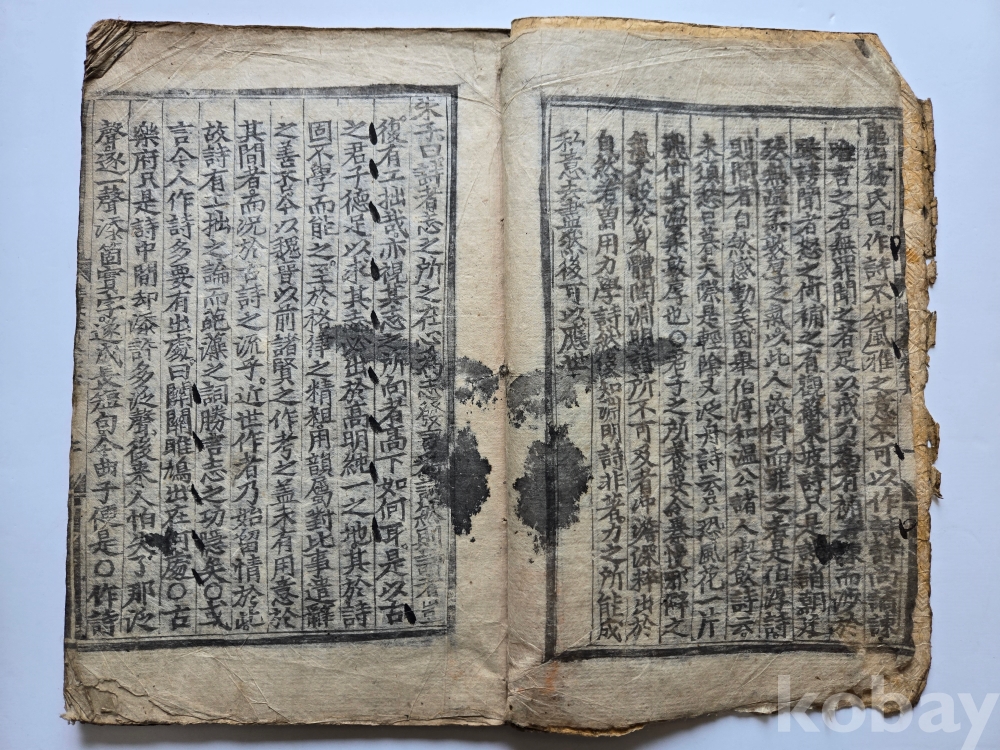 龜山楊氏曰作詩不知風雅之意不可以作詩詩尚譎諫
唯言之者無罪聞之者足以戒乃爲有補 諫而涉於
毀謗聞者怒之何補之有觀蘇東坡詩只是譏誚朝廷
殊無溫柔敦厚之氣以此人故得而罪之若是伯淳詩
則聞者自然感動矣因舉伯淳和溫公諸人禊飲詩云
未須愁日暮天際是輕陰又泛舟詩云只恐風花一片
飛何其溫柔敦厚也〇君子之所養要令暴慢邪僻之
氣不設於身體陶淵明詩所不可及者冲澹深粹出於
自然若曾用力學詩然後知淵明詩非著力之所能成
私意去盡然後可以應世
朱子曰詩者志之所之在心爲志發言爲詩然則詩者豈
復有工拙哉亦視其志之所向者高下如何耳是以古
之君子德足以求其志必出於高明純一之地其於詩
固不學而能之至於格律之精粗用韻屬對比事遣辭
之善否今以魏晉以前諸賢之作考之盖未有用意於
其間者而況於古詩之流乎近世作者乃始留情於此
故詩有工拙之論而葩藻之詞勝言志之功隱矣〇或
言今人作詩多要有出處曰關關雎鳩出在何處〇古
樂府只是詩中間却添許多泛聲後來人怕失了那泛
聲逐一聲添箇實字遂成長短句今曲子便是〇作詩
kobay